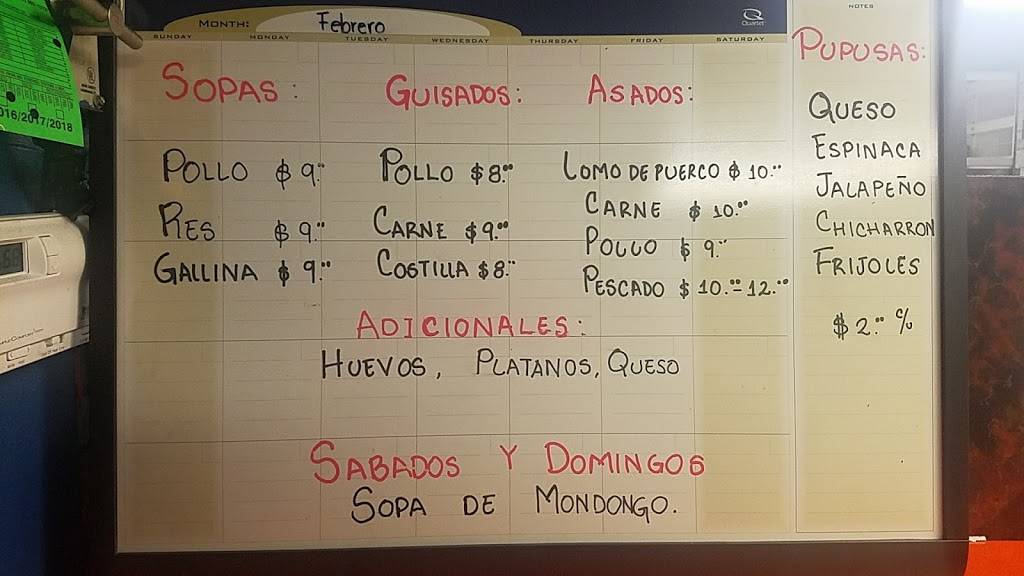 MONTH: Febrero
Quartet
NOTES
SUNDAY MONDAY TUESDAY WEDNESDAY THURSDAY FRIDAY SATURDAY
SOPAS:
POLLO $9.00
RES $9.00
GALLINA $9.00
GUISADOS:
POLLO $8.00
CARNE $9.00
COSTILLA $8.00
ASADOS:
LOMO DE PUERCO $10.00
CARNE $10.00
POLLO $9.00
PESCADO $10.00-12.00
ADICIONALES:
HUEVOS, PLATANOS, QUESO
SABADOS Y DOMINGOS
SOPA DE MONDONGO.
PUPUSAS:
QUESO
ESPINACA
JALAPEÑO
CHICHARRON
FRIJOLES
$2.00 %
016/2017/2018